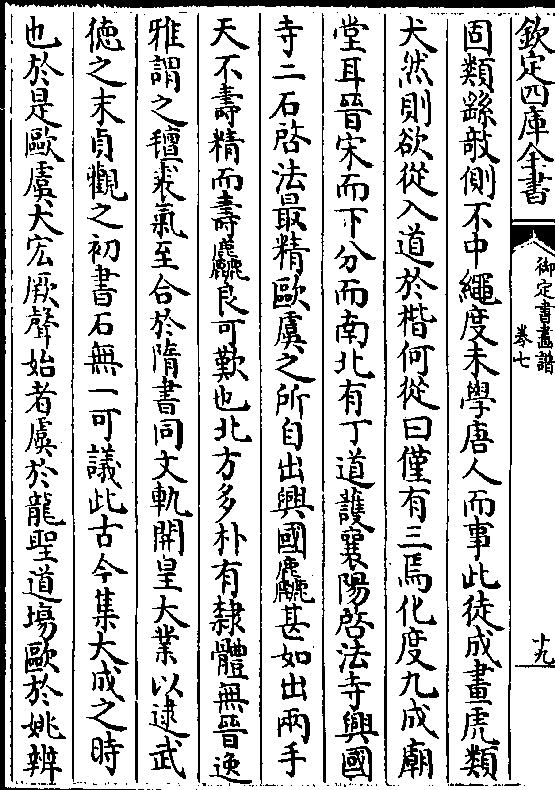 欽定四庫全書
御定書畫譜
卷七
十九
固類繇敧側不中繩度未學唐人而事此徒成畫虎類
犬然則欲從入道於楷何從曰僅有三焉化度九成廟
堂耳晉宋而下分而南北有丁道護襄陽啓法寺興國
寺二石啓法最精歐虞之所自出興國麤甚如出兩手
天不壽精而壽麤良可歎也北方多朴有隸體無晉逸
雅謂之氊裘氣至合於隋書同文軌開皇大業以逮武
徳之末貞觀之初書石無一可議此古今集大成之時
也於是歐虞大宏厥聲始者虞於龍聖道塲歐於姚辨